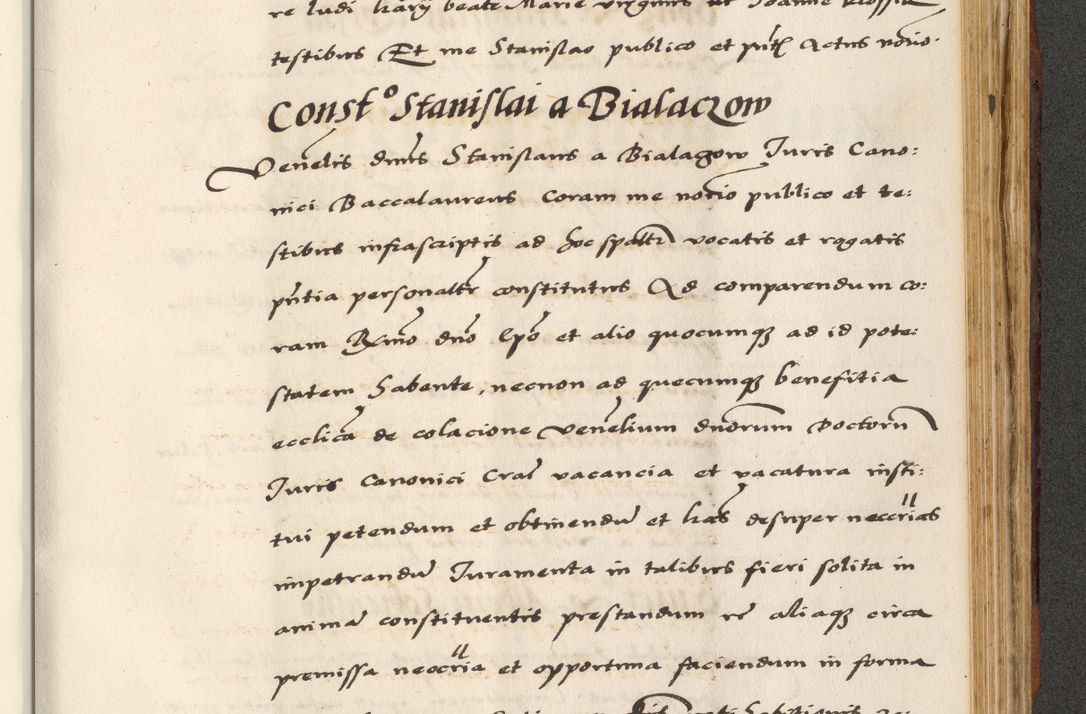 re ludi hary beate Marie virginis
testibus Et me Stanislao publico et pntj Actus norio.
Const.º Stanislai a Bialaczow
Venelis dnus Stanislaus a Bialagow Juris Cano:
nici Baccalaureus Coram me norio publico et te:
stibus infrascriptis ad hoc spalter vocatis et rogatis
pntia personalter constitutus Ad comparendum co:
ram Rxmo dno Epo et alio quocumq3 ad id pote:
statem habente, necnon ad quecumq3 benefitia
ecclica de colacione venelium dnorum Doctoru
Juris Canonici Cral vacancia et vacatura insti:
tui petendum et obtinendu et lras desuper neccrias
impetrandu Juramenta in talibus fieri solita in
anima constituentis prestandum re aliaq3 circa
premissa neccria et opportuna faciendum in forma